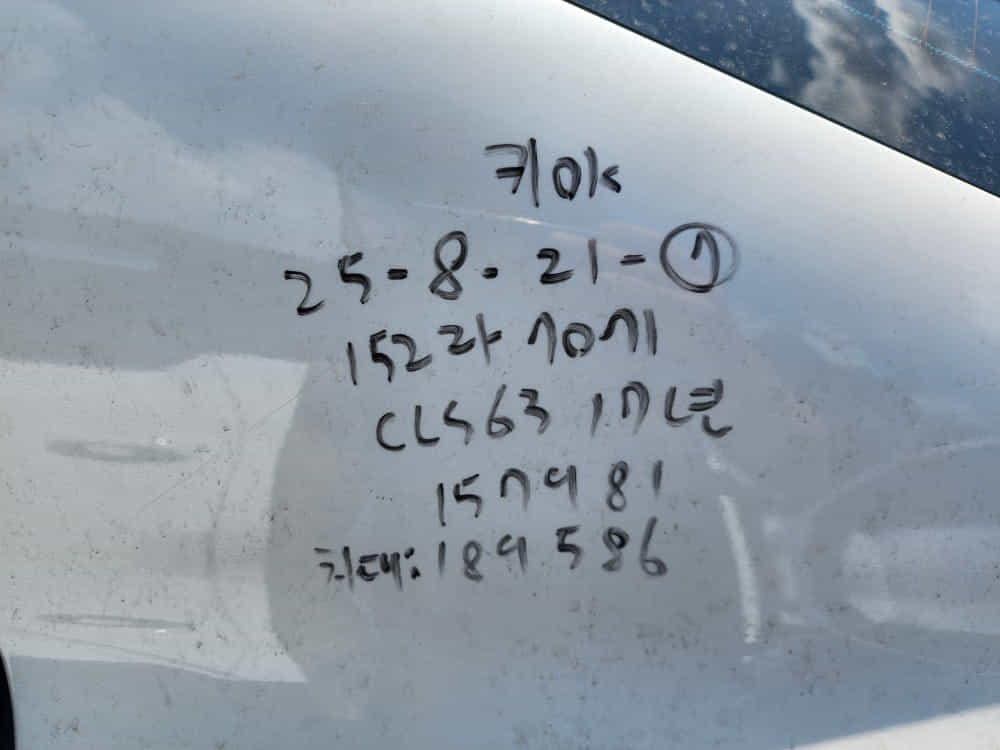 키마
25-8-21-①
152라7071
CLS63 17년
157981
차대:189586